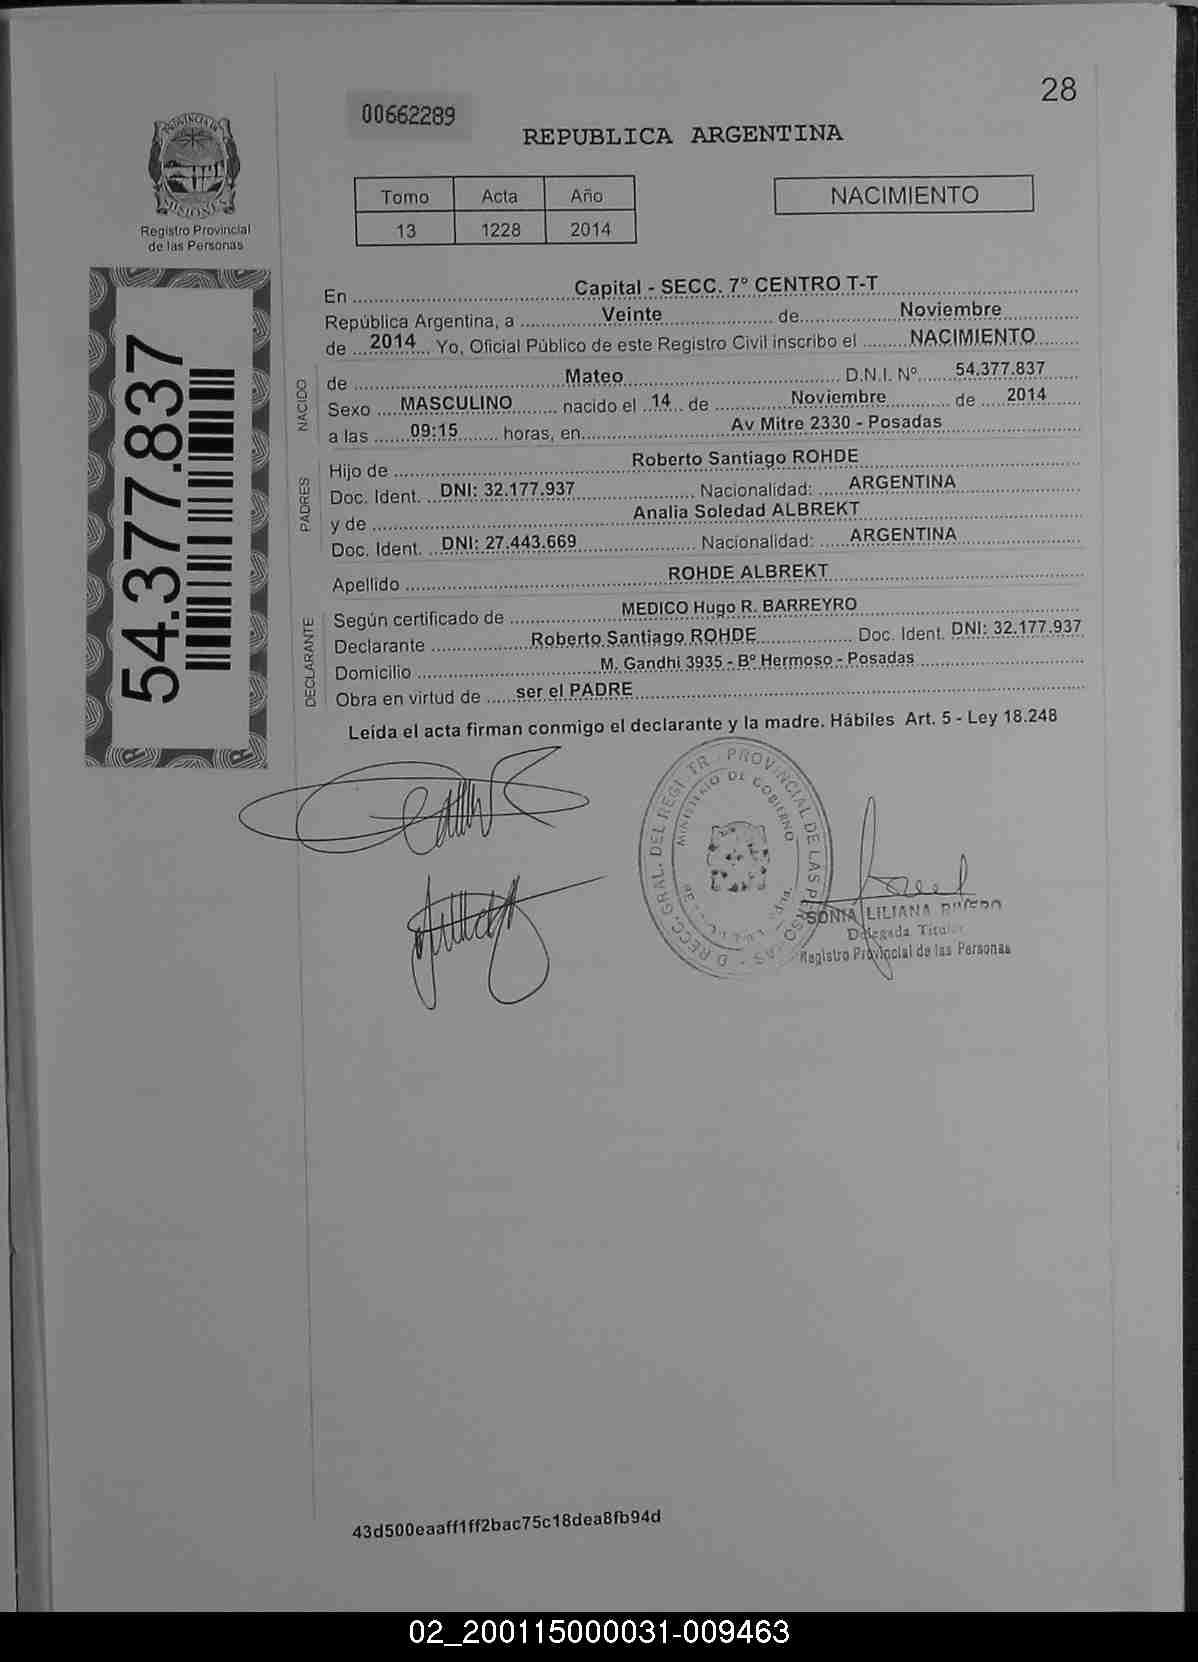 28
00662289
REPUBLICA ARGENTINA
PROVINCIA DE
MISIONES
Registro Provincial
de las Personas
Tomo Acta Año
13 1228 2014
NACIMIENTO
54.377.837
En Capital - SECC. 7° CENTRO T-T
República Argentina, a Veinte de Noviembre
de 2014 Yo, Oficial Público de este Registro Civil inscribo el NACIMIENTO
NACIDO
de Mateo D.N.I. N° 54.377.837
Sexo MASCULINO nacido el 14 de Noviembre de 2014
a las 09:15 horas, en Av Mitre 2330 - Posadas
PADRES
Hijo de Roberto Santiago ROHDE
Doc. Ident. DNI: 32.177.937 Nacionalidad: ARGENTINA
y de Analia Soledad ALBREKT
Doc. Ident. DNI: 27.443.669 Nacionalidad: ARGENTINA
Apellido ROHDE ALBREKT
DECLARANTE
Según certificado de MEDICO Hugo R. BARREYRO
Declarante Roberto Santiago ROHDE Doc. Ident. DNI: 32.177.937
Domicilio M. Gandhi 3935 - B° Hermoso - Posadas
Obra en virtud de ser el PADRE
Leída el acta firman conmigo el declarante y la madre. Hábiles Art. 5 - Ley 18.248
PROVINCIAL DE LAS
MINISTERIO DE GOBIERNO
SONIA LILIANA RIVERO
Delegada Titular
Registro Provincial de las Personas
43d500eaaff1ff2bac75c18dea8fb94d
02_200115000031-009463